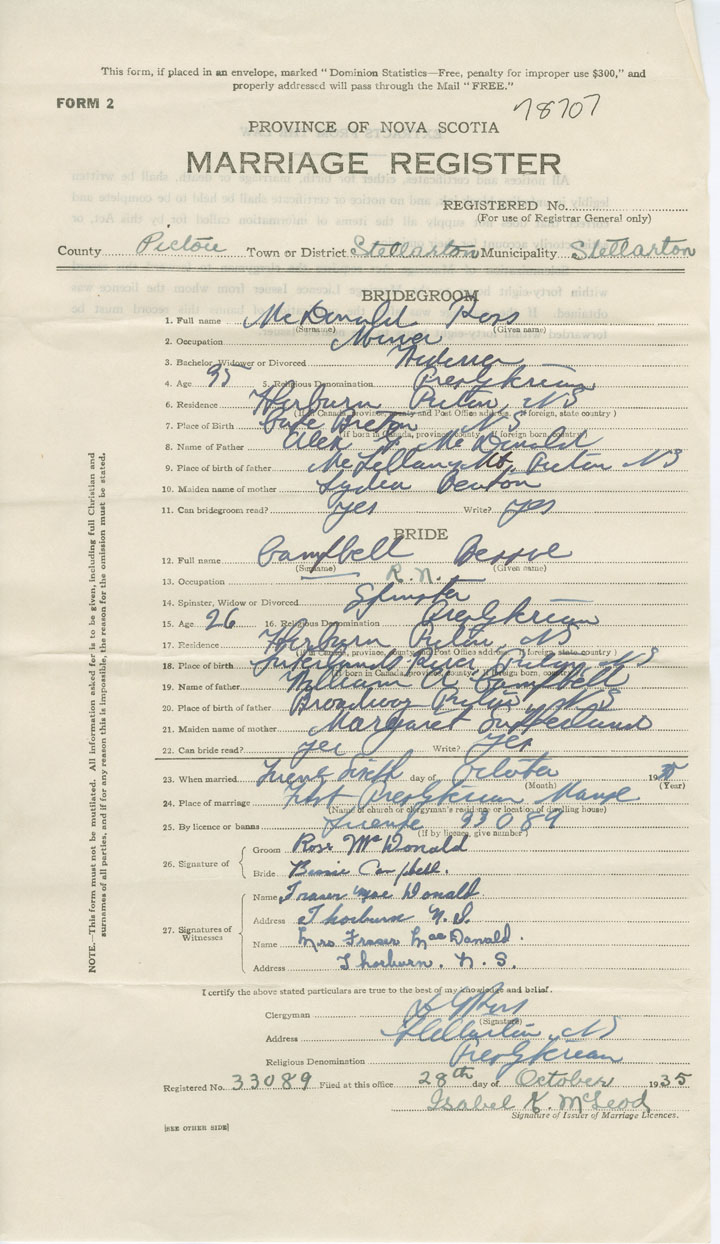 This form, if placed in an envelope, marked "Dominion Statistics—Free, penalty for improper use $300," and
properly addressed will pass through the Mail "FREE."
FORM 2
78707
PROVINCE OF NOVA SCOTIA
MARRIAGE REGISTER
REGISTERED No.
(For use of Registrar General only)
County Pictou Town or District Stellarton Municipality Stellarton
BRIDEGROOM
1. Full name McDonald Ross
(Surname) (Given name)
2. Occupation Miner
3. Bachelor, Widower or Divorced Widower
4. Age 35 5. Religious Denomination Presbyterian
6. Residence Thorburn Pictou NS
(If in Canada, province, county and Post Office address. If foreign, state country)
7. Place of Birth Cape Breton NS
(If born in Canada, province, county. If foreign born, country)
8. Name of Father Alex McDonald
9. Place of birth of father McLellans Mt. Pictou NS
10. Maiden name of mother Lydia
11. Can bridegroom read? yes Write? yes
BRIDE
12. Full name Campbell Bessie
(Surname) (Given name)
13. Occupation R.N.
14. Spinster, Widow or Divorced Spinster
15. Age 26 16. Religious Denomination Presbyterian
17. Residence Thorburn Pictou NS
(If in Canada, province, county and Post Office address. If foreign, state country)
18. Place of birth Sutherlands River Pictou NS
(If born in Canada, province, county. If foreign born, country)
19. Name of father William A. Campbell
20. Place of birth of father Broadway Pictou NS
21. Maiden name of mother Margaret Sutherland
22. Can bride read? yes Write? yes
23. When married Twenty Sixth day of October 1935
(Month) (Year)
24. Place of marriage First Presbyterian Manse
(Name of church or clergyman's residence or location of dwelling house)
25. By licence or banns License 33089
(If by licence, give number)
26. Signature of
Groom Ross McDonald
Bride Bessie Campbell.
27. Signatures of Witnesses
Name Fraser MacDonald
Address Thorburn N.S.
Name Mrs Fraser MacDonald.
Address Thorburn. N.S.
I certify the above stated particulars are true to the best of my knowledge and belief.
Clergyman
(Signature)
Address Stellarton NS
Religious Denomination Presbyterian
Registered No. 33089 Filed at this office 28th day of October 1935
Isabel K. McLeod
Signature of Issuer of Marriage Licences.
[SEE OTHER SIDE]
NOTE.—This form must not be mutilated. All information asked for is to be given, including full Christian and
surnames of all parties, and if for any reason this is impossible, the reason for the omission must be stated.